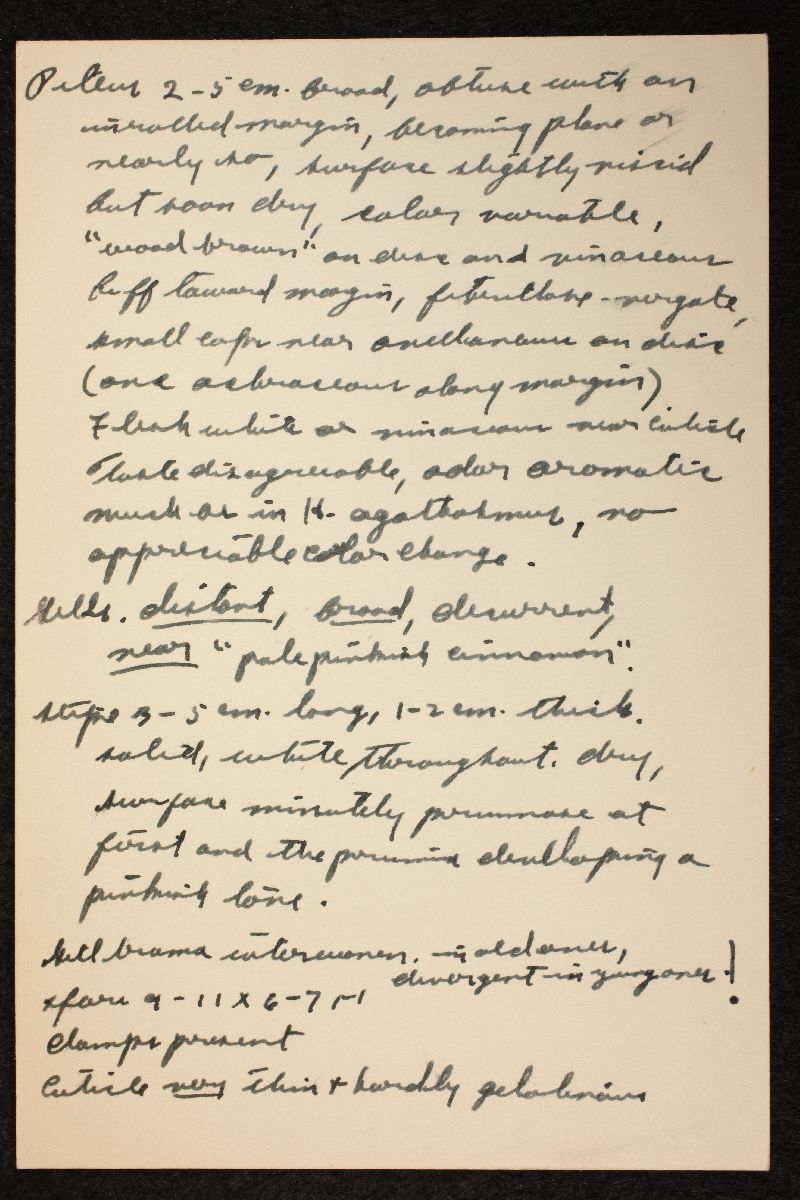 Pileus 2-5 cm. broad, obtuse with an
inrolled margin, becoming plane or
nearly so, surface slightly viscid
but soon dry, color variable,
"wood brown" on disc and vinaceous
buff toward margin, fibrillose-virgate,
small caps near avellaneous on disc
(one ochraceous along margin)
Flesh white or vinaceous near cuticle
Taste disagreeable, odor aromatic
much as in H. agathosmus, no
appreciable color change.
Gills. distant, broad, decurrent,
near "pale pinkish cinnamon".
stipe 3-5 cm. long, 1-2 cm. thick.
solid, white throughout. dry,
surface minutely pruinose at
first and the pruina developing a
pinkish tone.
Gill trama interwoven. in old ones,
divergent in young ones!
spores 9-11 x 6-7 µ
Clamps present
Cuticle very thin + hardly gelatinous